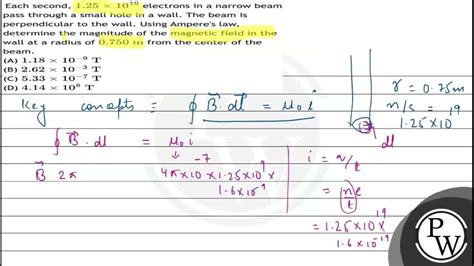 Each second, 1.25 × 10¹⁹ electrons in a narrow beam
pass through a small hole in a wall. The beam is
perpendicular to the wall. Using Ampere's law,
determine the magnitude of the magnetic field in the
wall at a radius of 0.750 m from the center of the
beam.
(A) 1.18 × 10⁻⁹ T
(B) 2.62 × 10⁻³ T
(C) 5.33 × 10⁻⁷ T
(D) 4.14 × 10⁸ T
Key concepts = ∮ B⃗. dl⃗ = μ₀ i
r = 0.75m
n/s = 1.25 × 10¹⁹
dl
∮ B⃗. dl = μ₀ i
B⃗ 2π
4π × 10⁻⁷ × 1.25 × 10⁹ ×
1.6 × 10⁹
i = q/t
= (n/t) e
= 1.25 × 10¹⁹ ×
1.6 × 10⁻¹⁹
PW